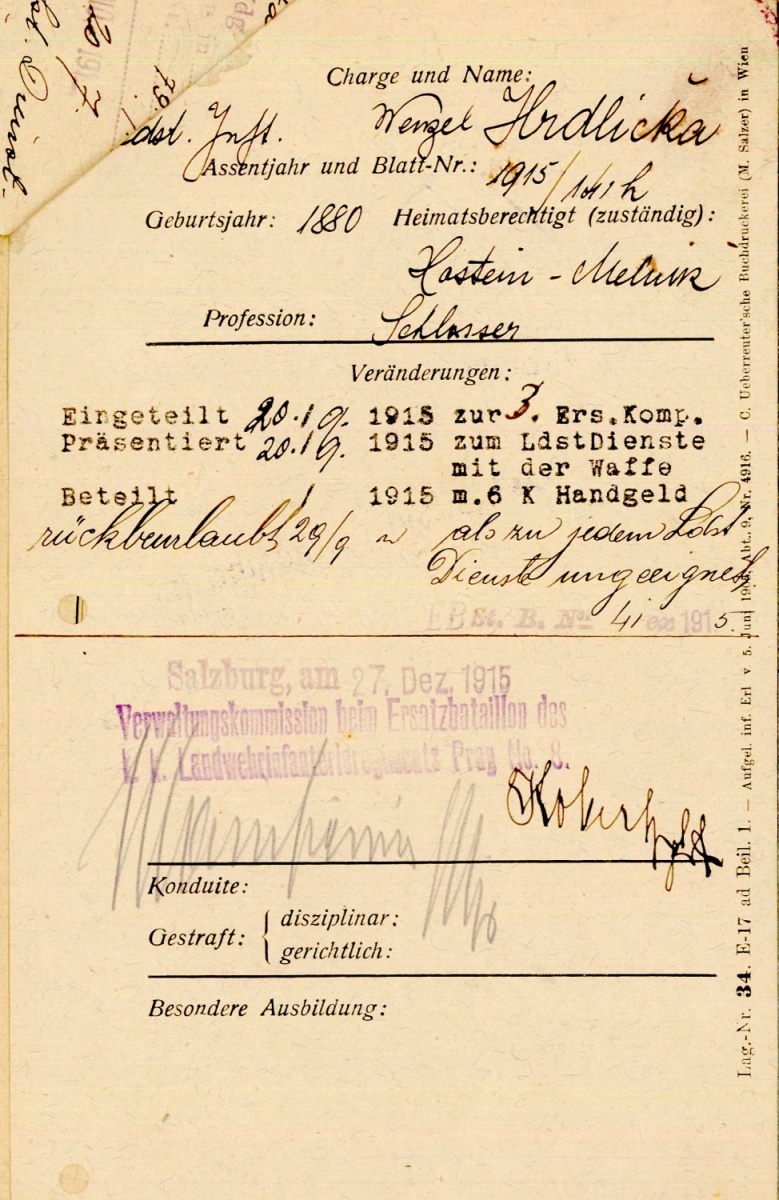 Charge und Name:
Ldst. Inft. Wenzel Hrdlička
Assentjahr und Blatt-Nr.: 1915/141 h
Geburtsjahr: 1880 Heimatsberechtigt (zuständig):
Hostein - Melnik
Profession: Schlosser
Veränderungen:
Eingeteilt 20./9. 1915 zur 3. Ers.Komp.
Präsentiert 20./9. 1915 zum LdstDienste
mit der Waffe
Beteilt / 1915 m.6 K Handgeld
rückbeurlaubt 29/9 als zu jedem Ldst
Dienste ungeeignet
EBSt. B. No 41 ex 1915.
Salzburg, am 27. Dez. 1915
Verwaltungskommission beim Ersatzbataillon des
k. k. Landwehrinfanterieregiments Prag No. 8.
Konduite:
Gestraft: disziplinar:
gerichtlich:
Besondere Ausbildung:
Lag.-Nr. 34. E-17 ad Beil. 1. — Aufgel. inf. Erl v. 5. Juni Abt. 9, Nr. 4916. — C. Ueberreuter'sche Buchdruckerei (M. Salzer) in Wien